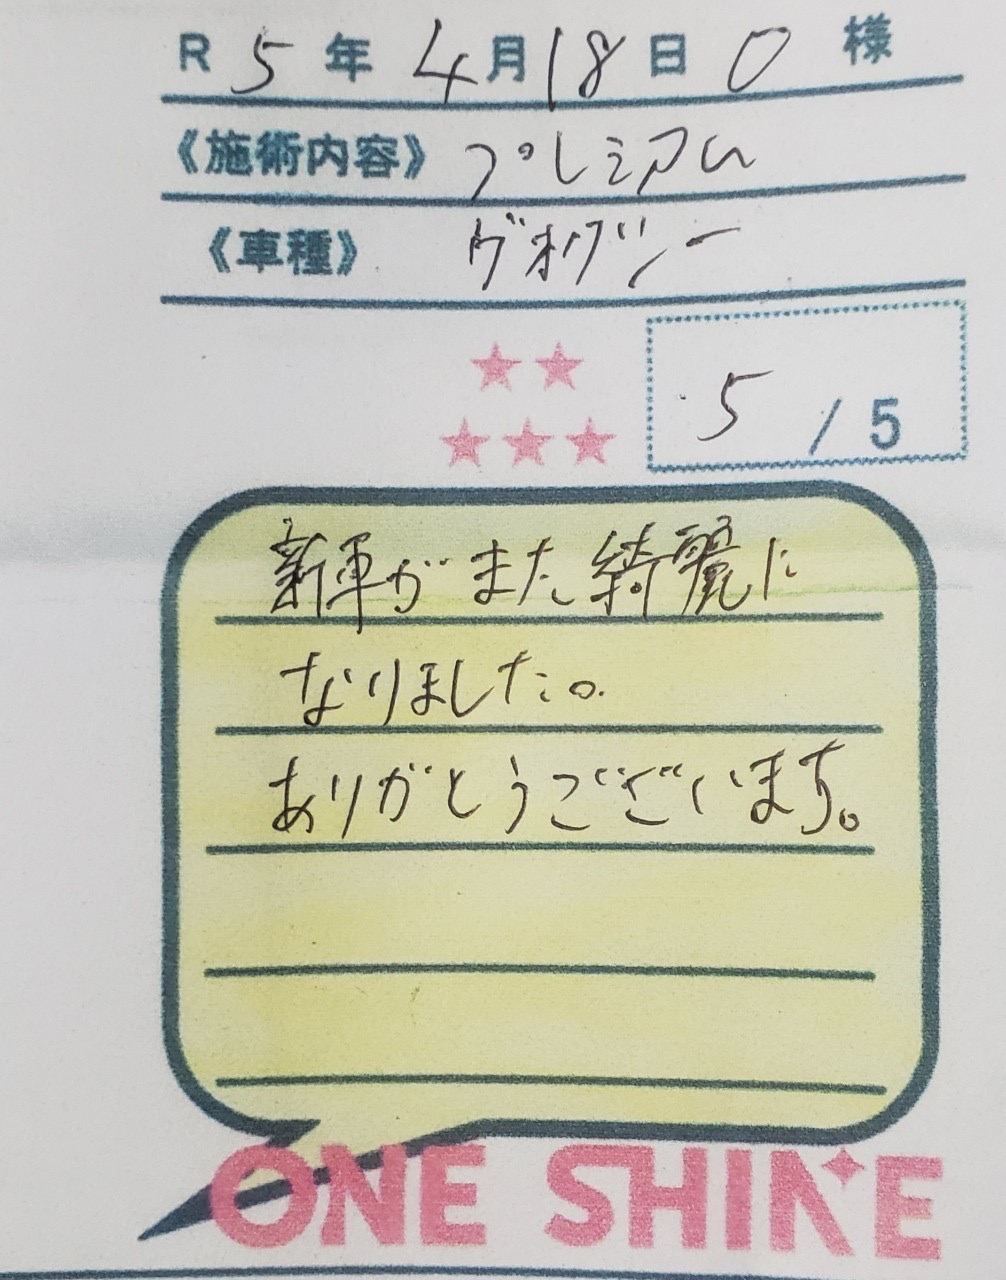 R 5 年 4 月 18 日 O 様
《施術内容》 プレミアム
《車種》 ヴォクシー
5 / 5
新車がまた綺麗に
なりました。
ありがとうございます。
ONE SHINE